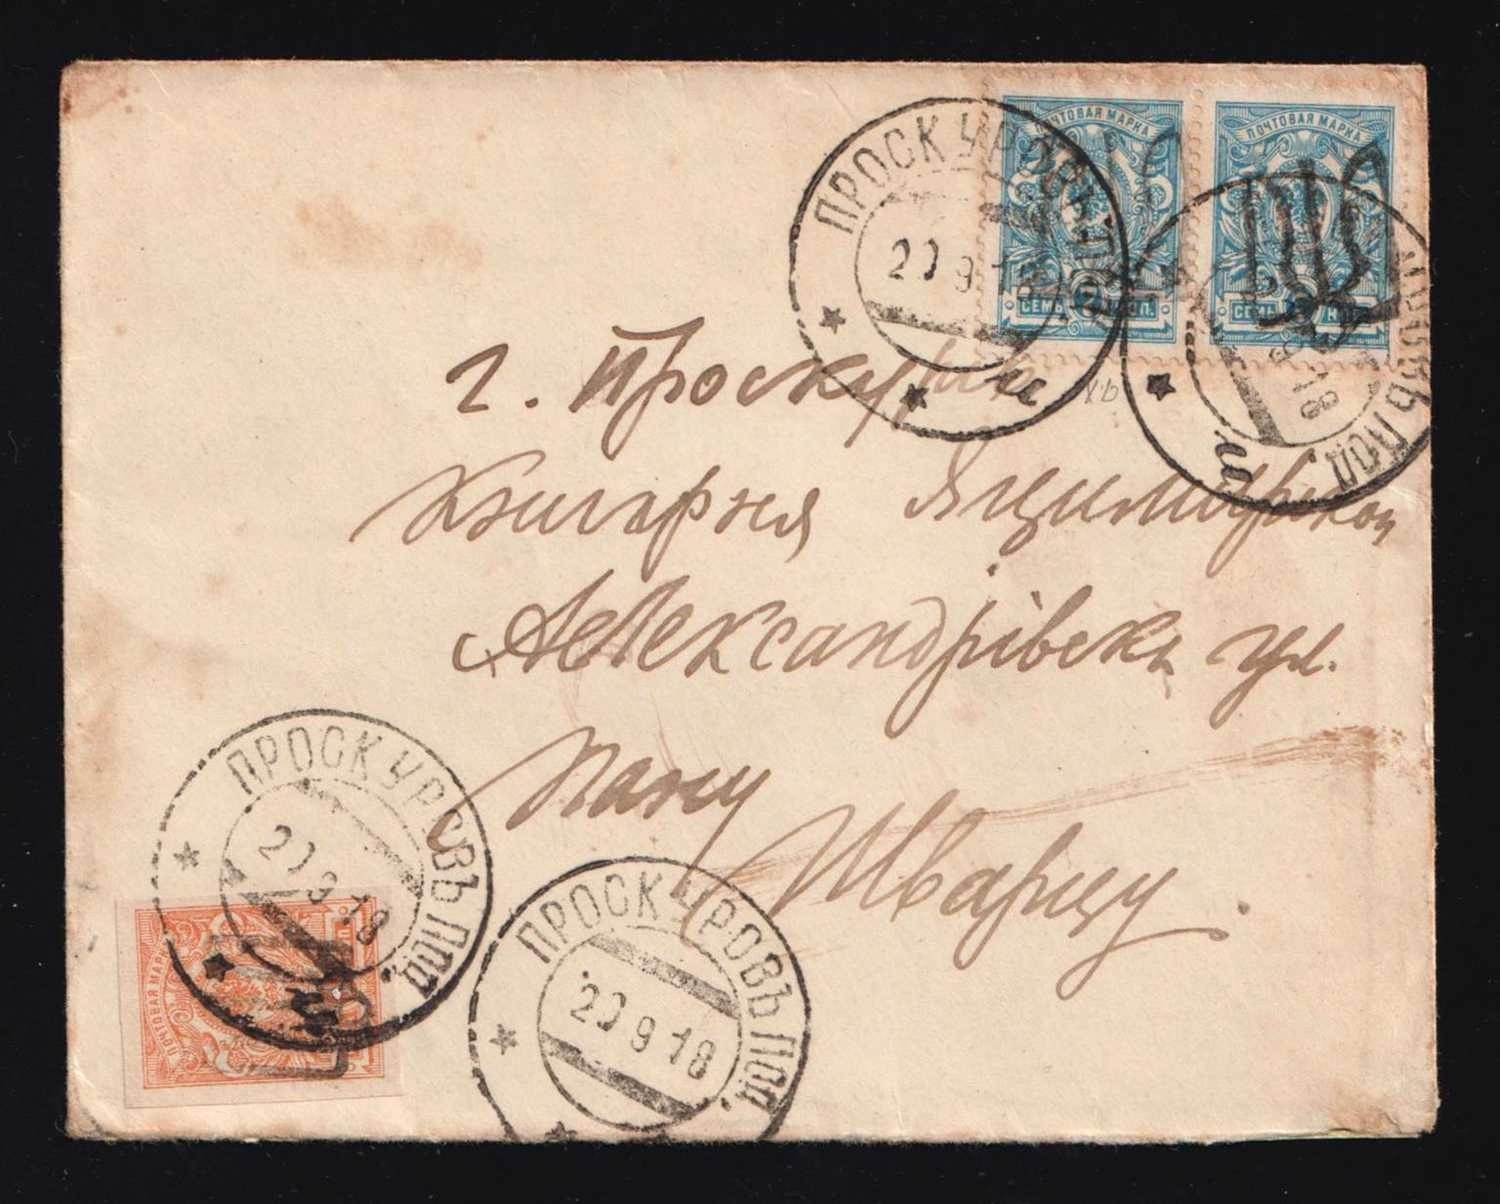 ПРОСКУРОВЪ ПОД.
20 9 18
ПОЧТОВАЯ МАРКА
СЕМЬ 7 КОП.
ПОЧТОВАЯ МАРКА
СЕМЬ КОП.
г. Проскурів
Книгарня Яцимирской
Александрівська ул.
Пану
Шварцу.
ПРОСКУРОВЪ ПОД.
20 9 18
ПОЧТОВАЯ МАРКА
ПРОСКУРОВЪ ПОД.
20 9 18